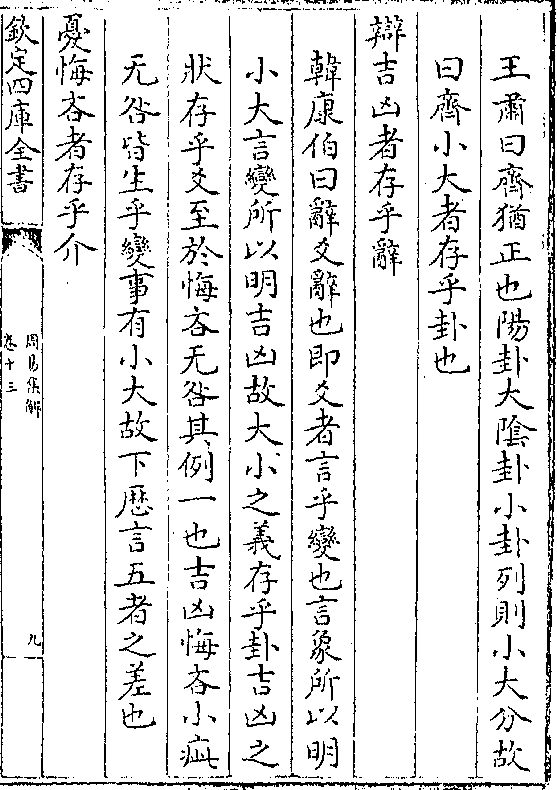 王肅曰齊猶正也陽卦大陰卦小卦列則小大分故
曰齊小大者存乎卦也
辯吉凶者存乎辭
韓康伯曰辭爻辭也即爻者言乎變也言象所以明
小大言變所以明吉凶故大小之義存乎卦吉凶之
狀存乎爻至於悔吝无咎其例一也吉凶悔吝小疵
无咎皆生乎變事有小大故下歷言五者之差也
憂悔吝者存乎介
欽定四庫全書
周易集解
卷十三
九